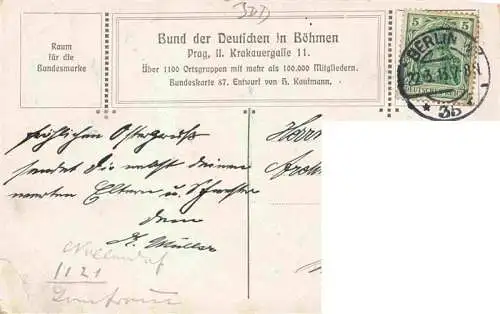 Raum
für die
Bundesmarke
Bund der Deutschen in Böhmen
Prag, II. Krakauergasse 11.
Über 1100 Ortsgruppen mit mehr als 100.000 Mitgliedern.
Bundeskarte 87. Entwurf von H. Kaufmann.
5 5
BERLIN W
22.3.13
* 35
fröhlichen Ostergruß
sendet Dir nebst deinen
werten Eltern u. Schwester
dein
K. Müller
Herrn
Nollendorf
1121